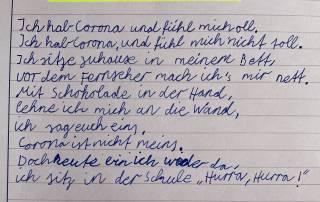 Ich hab Corona und fühl mich oll.
Ich hab Corona, und fühl mich nicht toll.
Ich sitze zuhause in meinem Bett,
vor dem Fernseher mach ich's mir nett.
Mit Schokolade in der Hand,
lehne ich mich an die Wand,
ich sag euch eins,
Corona ist nicht meins.
Doch heute bin ich wieder da,
ich sitz in der Schule „Hurra, Hurra!"